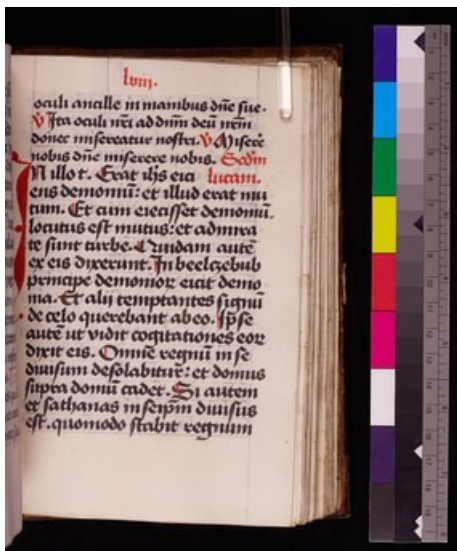 lviii.
oculi ancille in manibus dñe sue.
v̓ Ita oculi nr̄i ad dñm deū nr̄m
donec misereatur nostri. v̓ Miserē
nobis dñe miserere nobis. Scd̄m
N illo t. Erat ihs eici lucam.
ens demoniū: et illud erat mu
tum. Et cum eiecisset demoniū.
locutus est mutus: et admira
te sunt turbe. Quidam autē
ex eis dixerunt. In beelzebub
principe demonioꝝ eicit demo
nia. Et alij temptantes signū
de celo querebant ab eo. Ip̄se
autē ut vidit cogitationes eoꝝ
dixit eis. Omnē regnū in se
diuisum desolabitur: et domus
supra domū cadet. Si autem
et sathanas in seip̄m diuisus
est. quomodo stabit regnum